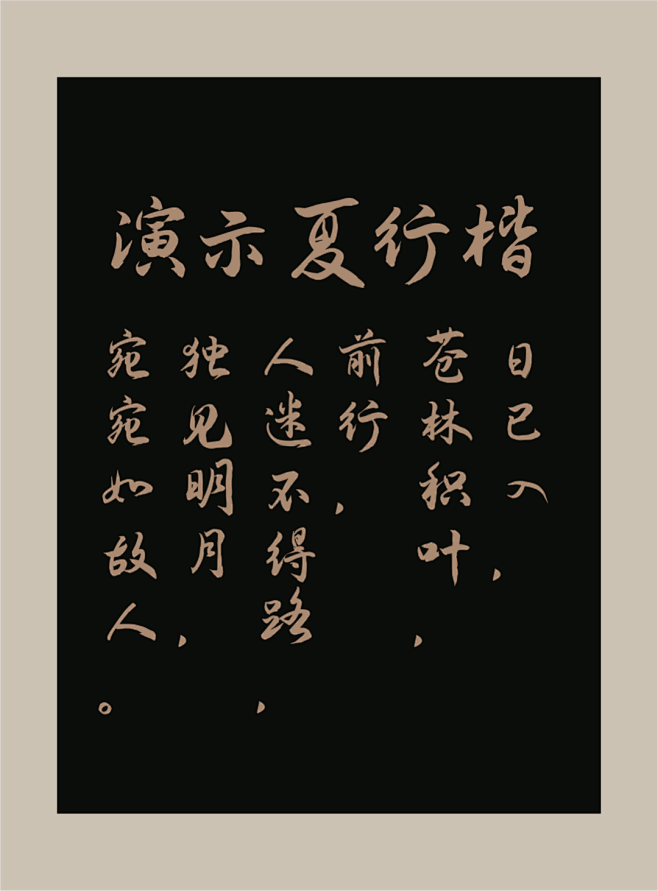 演示夏行楷
日已入，
苍林积叶，
前行，
人迷不得路，
独见明月，
宛宛如故人。